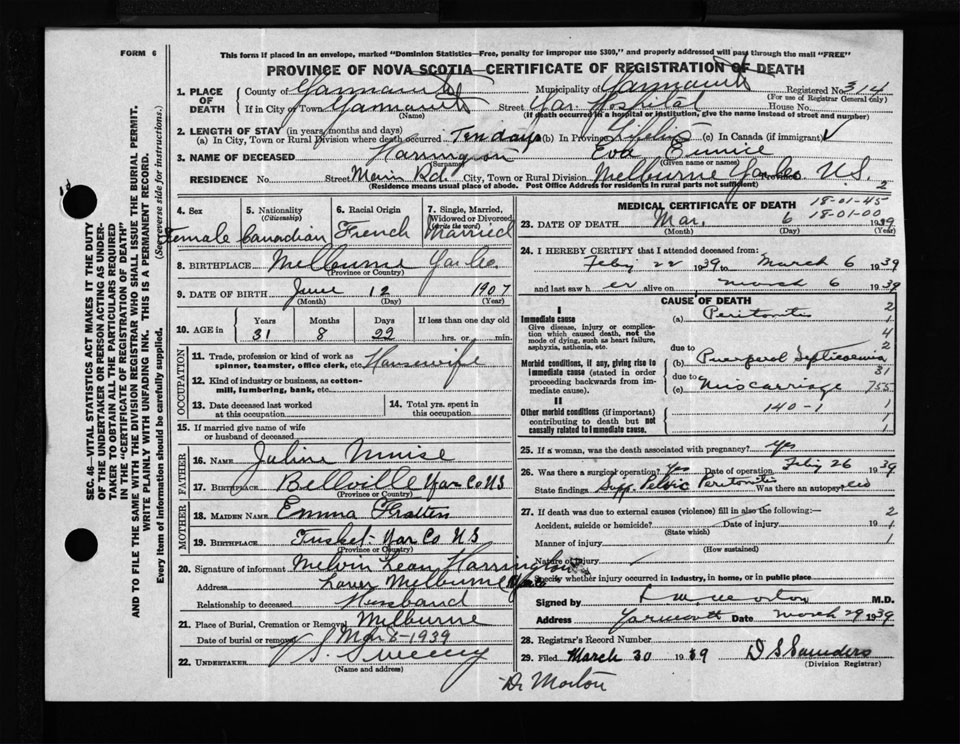 FORM 6
This form if placed in an envelope, marked "Dominion Statistics—Free, penalty for improper use $300," and properly addressed will pass through the mail "FREE"
PROVINCE OF NOVA SCOTIA—CERTIFICATE OF REGISTRATION OF DEATH
1. PLACE OF DEATH
County of Yarmouth Municipality of Yarmouth Registered No. 314
(For use of Registrar General only)
If in City or Town Yarmouth Street Yar. Hospital House No.
(Name) (If death occurred in a hospital or institution, give the name instead of street and number)
2. LENGTH OF STAY (in years, months and days)
(a) In City, Town or Rural Division where death occurred Ten days (b) In Province (c) In Canada (if immigrant)
3. NAME OF DECEASED Harrington Eva Eunice
(Surname) (Given name or names)
RESIDENCE No. Street Main Rd. City, Town or Rural Division Melburne Yar Co N.S. 2
(Residence means usual place of abode. Post Office Address for residents in rural parts not sufficient)
4. Sex
Female
5. Nationality (Citizenship)
Canadian
6. Racial Origin
French
7. Single, Married, Widowed or Divorced (write the word)
Married
8. BIRTHPLACE Melburne Yar Co.
(Province or Country)
9. DATE OF BIRTH June 12 1907
(Month) (Day) (Year)
10. AGE in Years Months Days If less than one day old
31 8 22 hrs. or min.
OCCUPATION
11. Trade, profession or kind of work as spinner, teamster, office clerk, etc. Housewife
12. Kind of industry or business, as cotton-mill, lumbering, bank, etc.
13. Date deceased last worked at this occupation
14. Total yrs. spent in this occupation
15. If married give name of wife or husband of deceased
FATHER
16. NAME Muise
17. BIRTHPLACE Bellville Yar Co N S
(Province or Country)
MOTHER
18. MAIDEN NAME Emma
19. BIRTHPLACE Tusket Yar Co N.S
(Province or Country)
20. Signature of informant Melvin Harrington
Address Lower Melburne Yar Co
Relationship to deceased Husband
21. Place of Burial, Cremation or Removal Melburne
Date of burial or removal Mar 8-1939
22. UNDERTAKER V. S. Sweeny
(Name and address)
MEDICAL CERTIFICATE OF DEATH 18-01-45
18-01-00
23. DATE OF DEATH Mar. 6 1939
(Month) (Day) (Year)
24. I HEREBY CERTIFY that I attended deceased from
Feby 22 1939 to March 6 1939
and last saw h er alive on March 6 1939
CAUSE OF DEATH
I
Immediate cause
Give disease, injury or complication which caused death, not the mode of dying, such as heart failure, asphyxia, asthenia, etc.
(a) Peritonitis 2
1
4
due to 2
Morbid conditions, if any, giving rise to immediate cause (stated in order proceeding backwards from immediate cause).
(b) Puerperal Septicaemia
31
due to
(c) Miscarriage 755
II
Other morbid conditions (if important) contributing to death but not causally related to immediate cause.
140-1 1
1
25. If a woman, was the death associated with pregnancy? Yes
26. Was there a surgical operation? Yes Date of operation Feby 26 1939
State findings Supp. Pelvic Peritonitis Was there an autopsy?
27. If death was due to external causes (violence) fill in also the following:— 2
Accident, suicide or homicide? Date of injury 19 1
(State which)
Manner of injury 1
(How sustained)
Nature of injury
Specify whether injury occurred in industry, in home, or in public place
Signed by Morton M.D.
Address Yarmouth Date March 29 1939
28. Registrar's Record Number
29. Filed March 30 1939 D S Saunders
(Division Registrar)
Dr Morton
SEC. 46—VITAL STATISTICS ACT MAKES IT THE DUTY
OF THE UNDERTAKER OR PERSON ACTING AS UNDER-
TAKER TO OBTAIN ALL THE PARTICULARS REQUIRED
IN THE "CERTIFICATE OF REGISTRATION OF DEATH"
AND TO FILE THE SAME WITH THE DIVISION REGISTRAR WHO SHALL ISSUE THE BURIAL PERMIT.
WRITE PLAINLY WITH UNFADING INK. THIS IS A PERMANENT RECORD.
Every item of information should be carefully supplied. (See reverse side for instructions.)